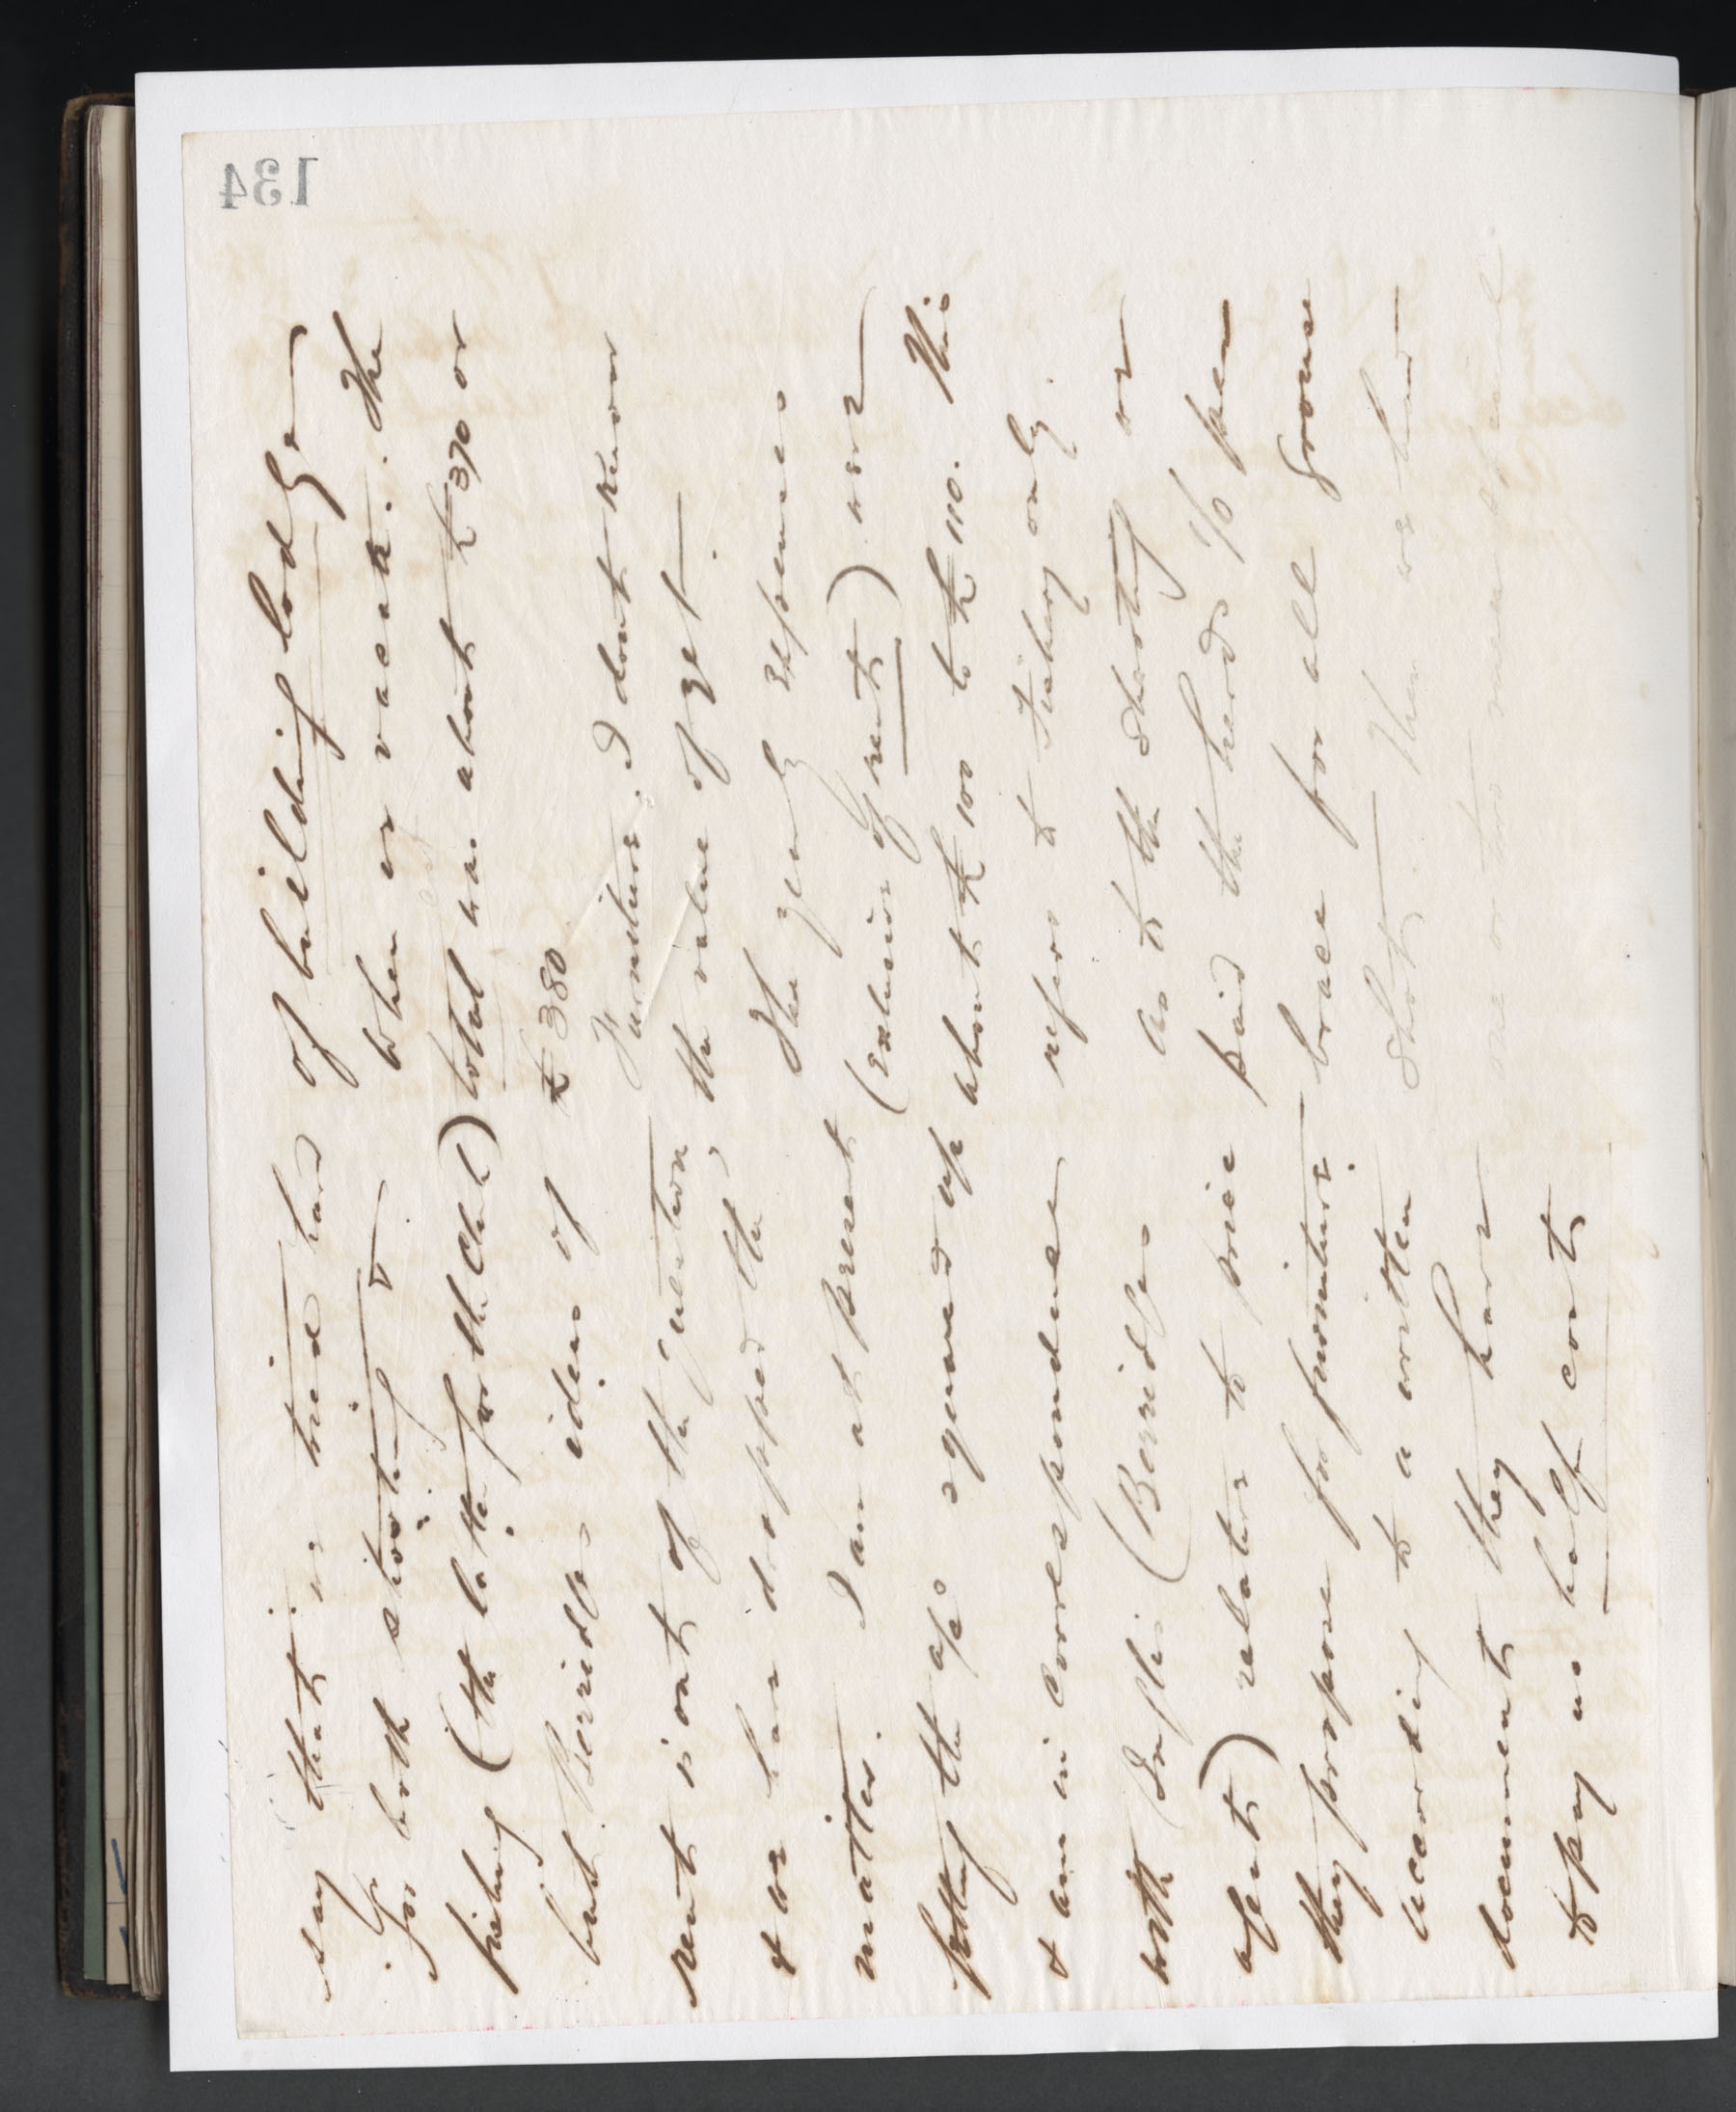 say that is tried hard of building lodge
for both shooting & when is vacate. The
fishing (the latter for the Club) total was about £370 or
but Berridges idea of £380
Furniture. I dont know
rent is out of the question the value of yet
& we have dropped the The yearly expenses
matter. I am at present (exclusive of rent) were
getting the a/cs squared up about £100 to £110. This
& am in correspondence refers to Fishery only.
with Inglis (Berridges as to the shooting we
agent) relative to price paid the herds 1/6 per
they propose for furniture. brace for all grouse
according to a written shot. Then we had
document they have one or two men
to pay us half cost
134